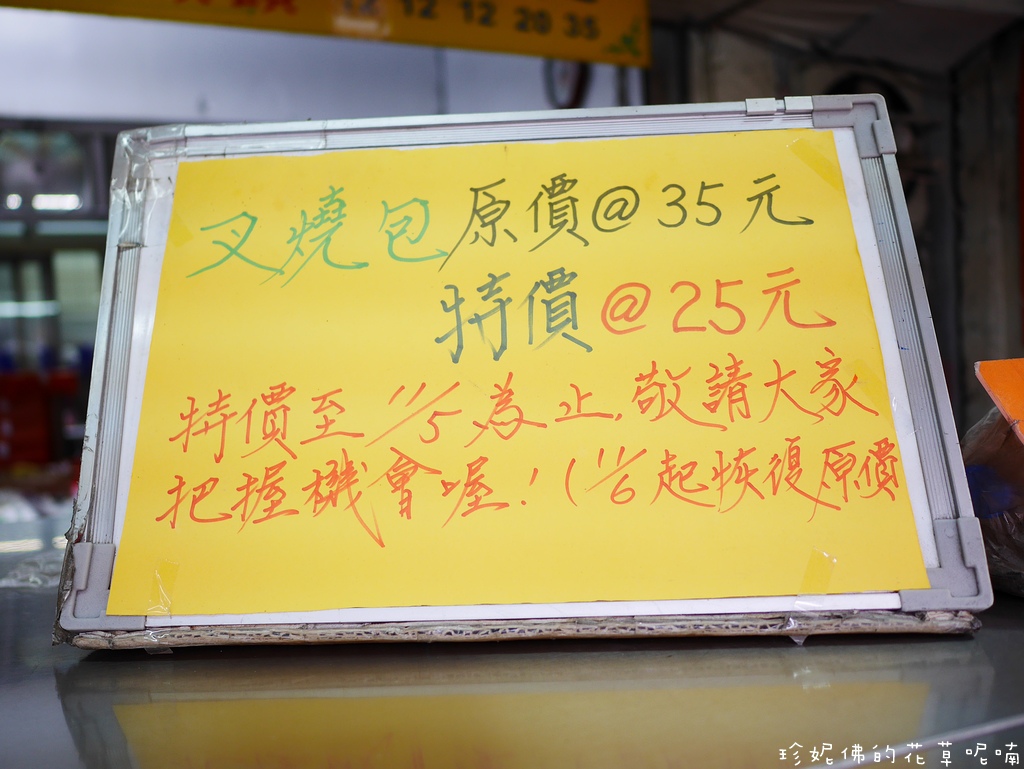 12 12 12 20 35
叉燒包原價@35元
特價@25元
特價至11/5為止,敬請大家
把握機會喔!(11/6起恢復原價
珍妮佛的花草呢喃